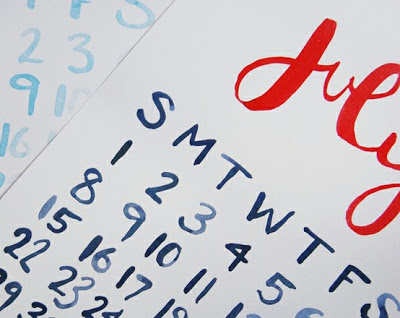 F S
2 3
9 10
16
July
S M T W T F S
1 2 3 4 5 6
8 9 10 11 12
15 16 17 18
22 23 24
29 30